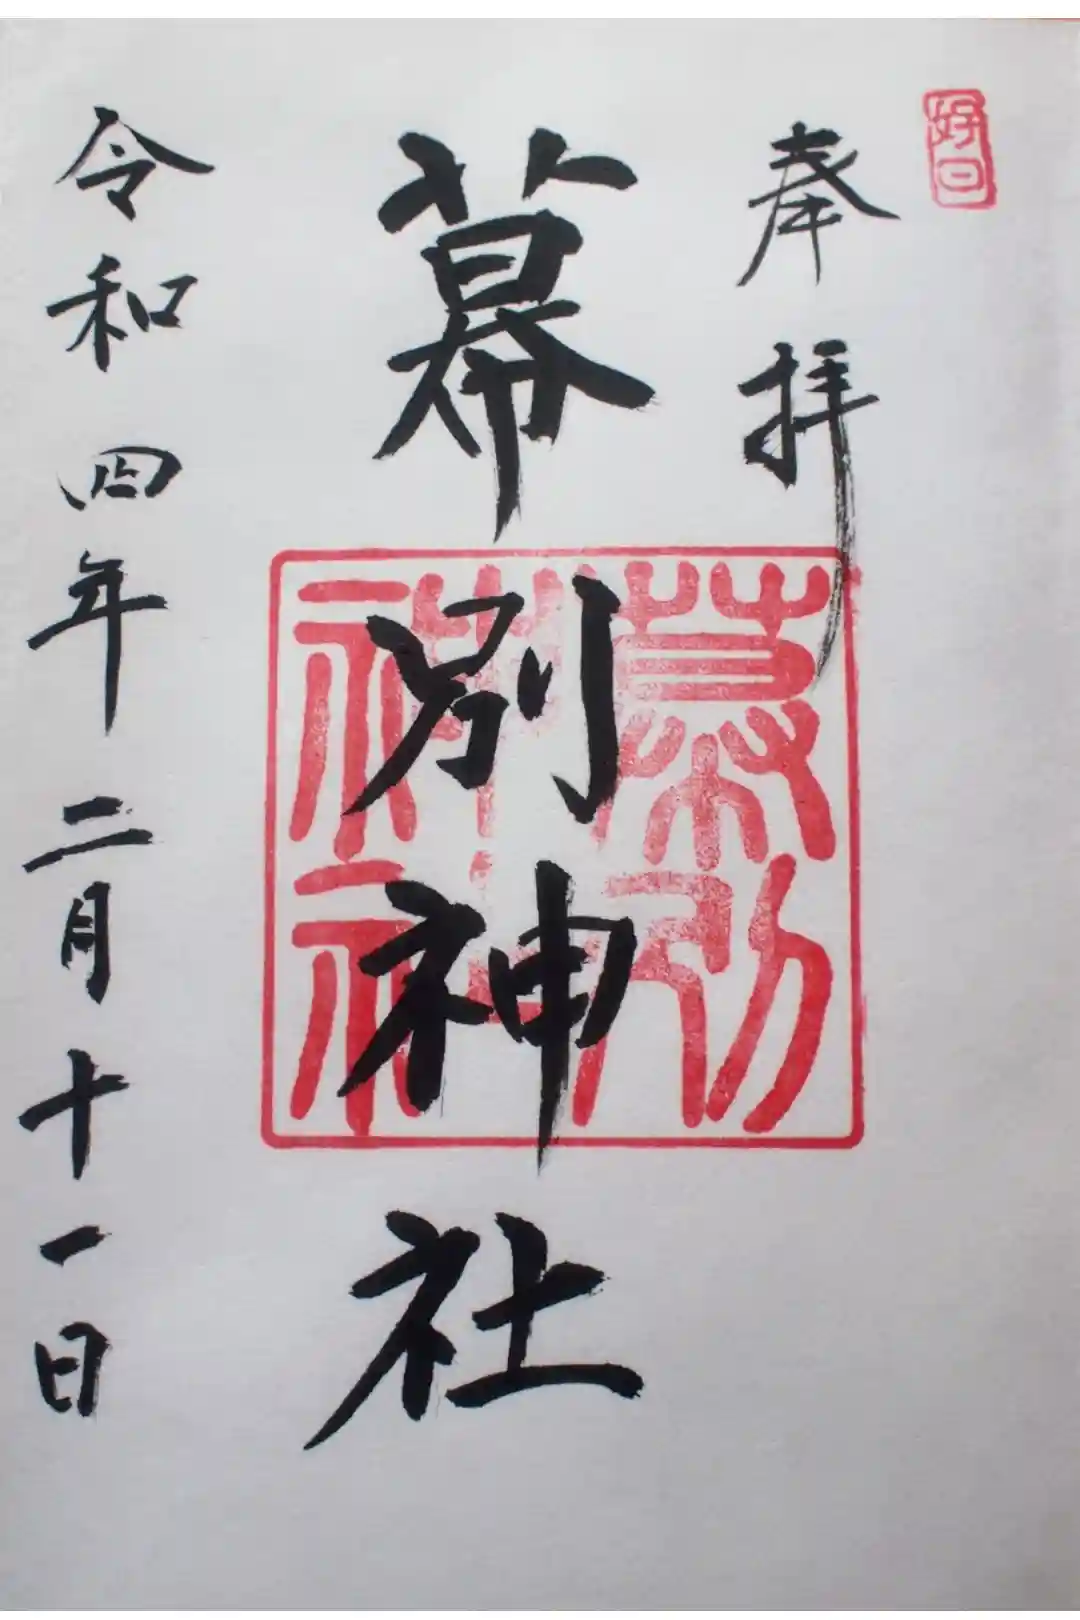 好日
奉拝
幕別神社
幕別
神社
令和四年二月十一日